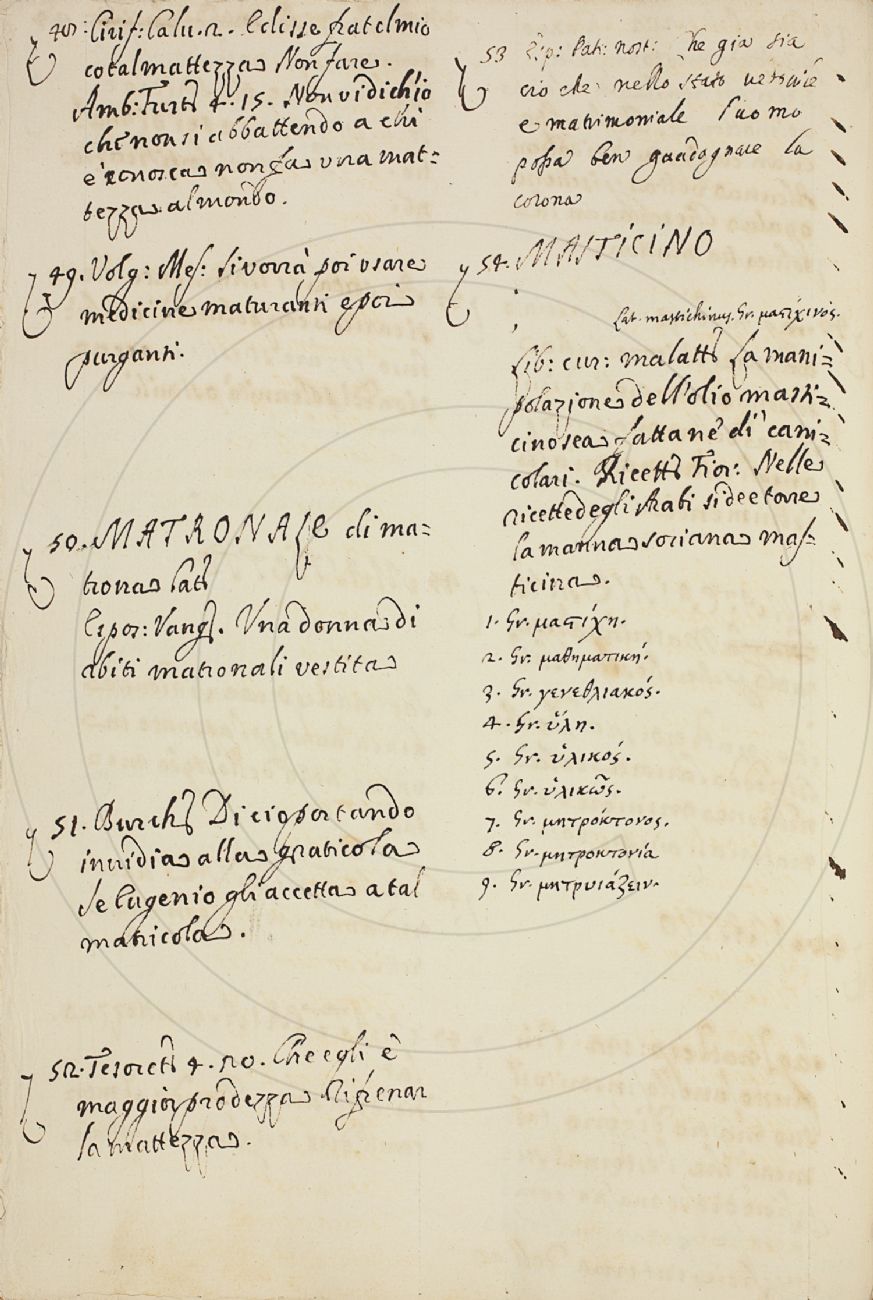 48: Cirif: Calu. 2. E disse fratel mio
cotal mattezza Non fare.
Amb: Furt: 4. 15. Non vidi chio
che non si abbattendo a chi
è conosca non fa una mat=
tezza al mondo.
49. Volg: Mes: Si vorrà poi usare
medicine maturanti e poi
purganti.
50. MATRONALE di ma=
trona Lat:
Espos: Vang: Una donna di
abiti matronali vestita
51. Burch: Di cio portando
invidia alla graticola
Se Eugenio gli accetta a tal
matricola.
52. Tesorett: 4. 20. Che egli è
maggior prodezza Rifrenar
la mattezza.
53 Esp: Pat: nost: Che gia sia
ciò che nello stato
e matrimoniale l'uomo
possa ben guadagnare la
corona
54. MASTICINO
Lat. mastichinus. Gr. μαϛίχινος.
Lib: cur: malatt: La mani=
polazione dell'olio masti=
cino sea fatta ne' dì cani=
colari. Ricett: Fior: Nelle
ricette degli Arabi si dee torre
la manna sociana mas-
ticina.
1. Gr. μαϛίχη.
2. Gr. μαθηματική.
3. Gr. γενεθλιακός.
4. Gr. ὕλη.
5. Gr. ὑλικός.
6. Gr. ὑλικῶς.
7. Gr. μητρόκτονος.
8. Gr. μητροκτονία
9. Gr. μητρυιάζειν.